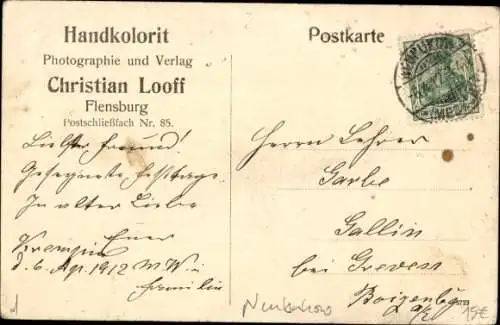 Handkolorit
Photographie und Verlag
Christian Looff
Flensburg
Postschließfach Nr. 85.
Postkarte
Liebster Freund!
Gesegnete Festtage.
In alter Liebe
Euer
d. 6. Ap. 1912
Familie
Herrn Lehrer
Garbe
Gallin
bei Greven
Boizenbg
a/E
15€